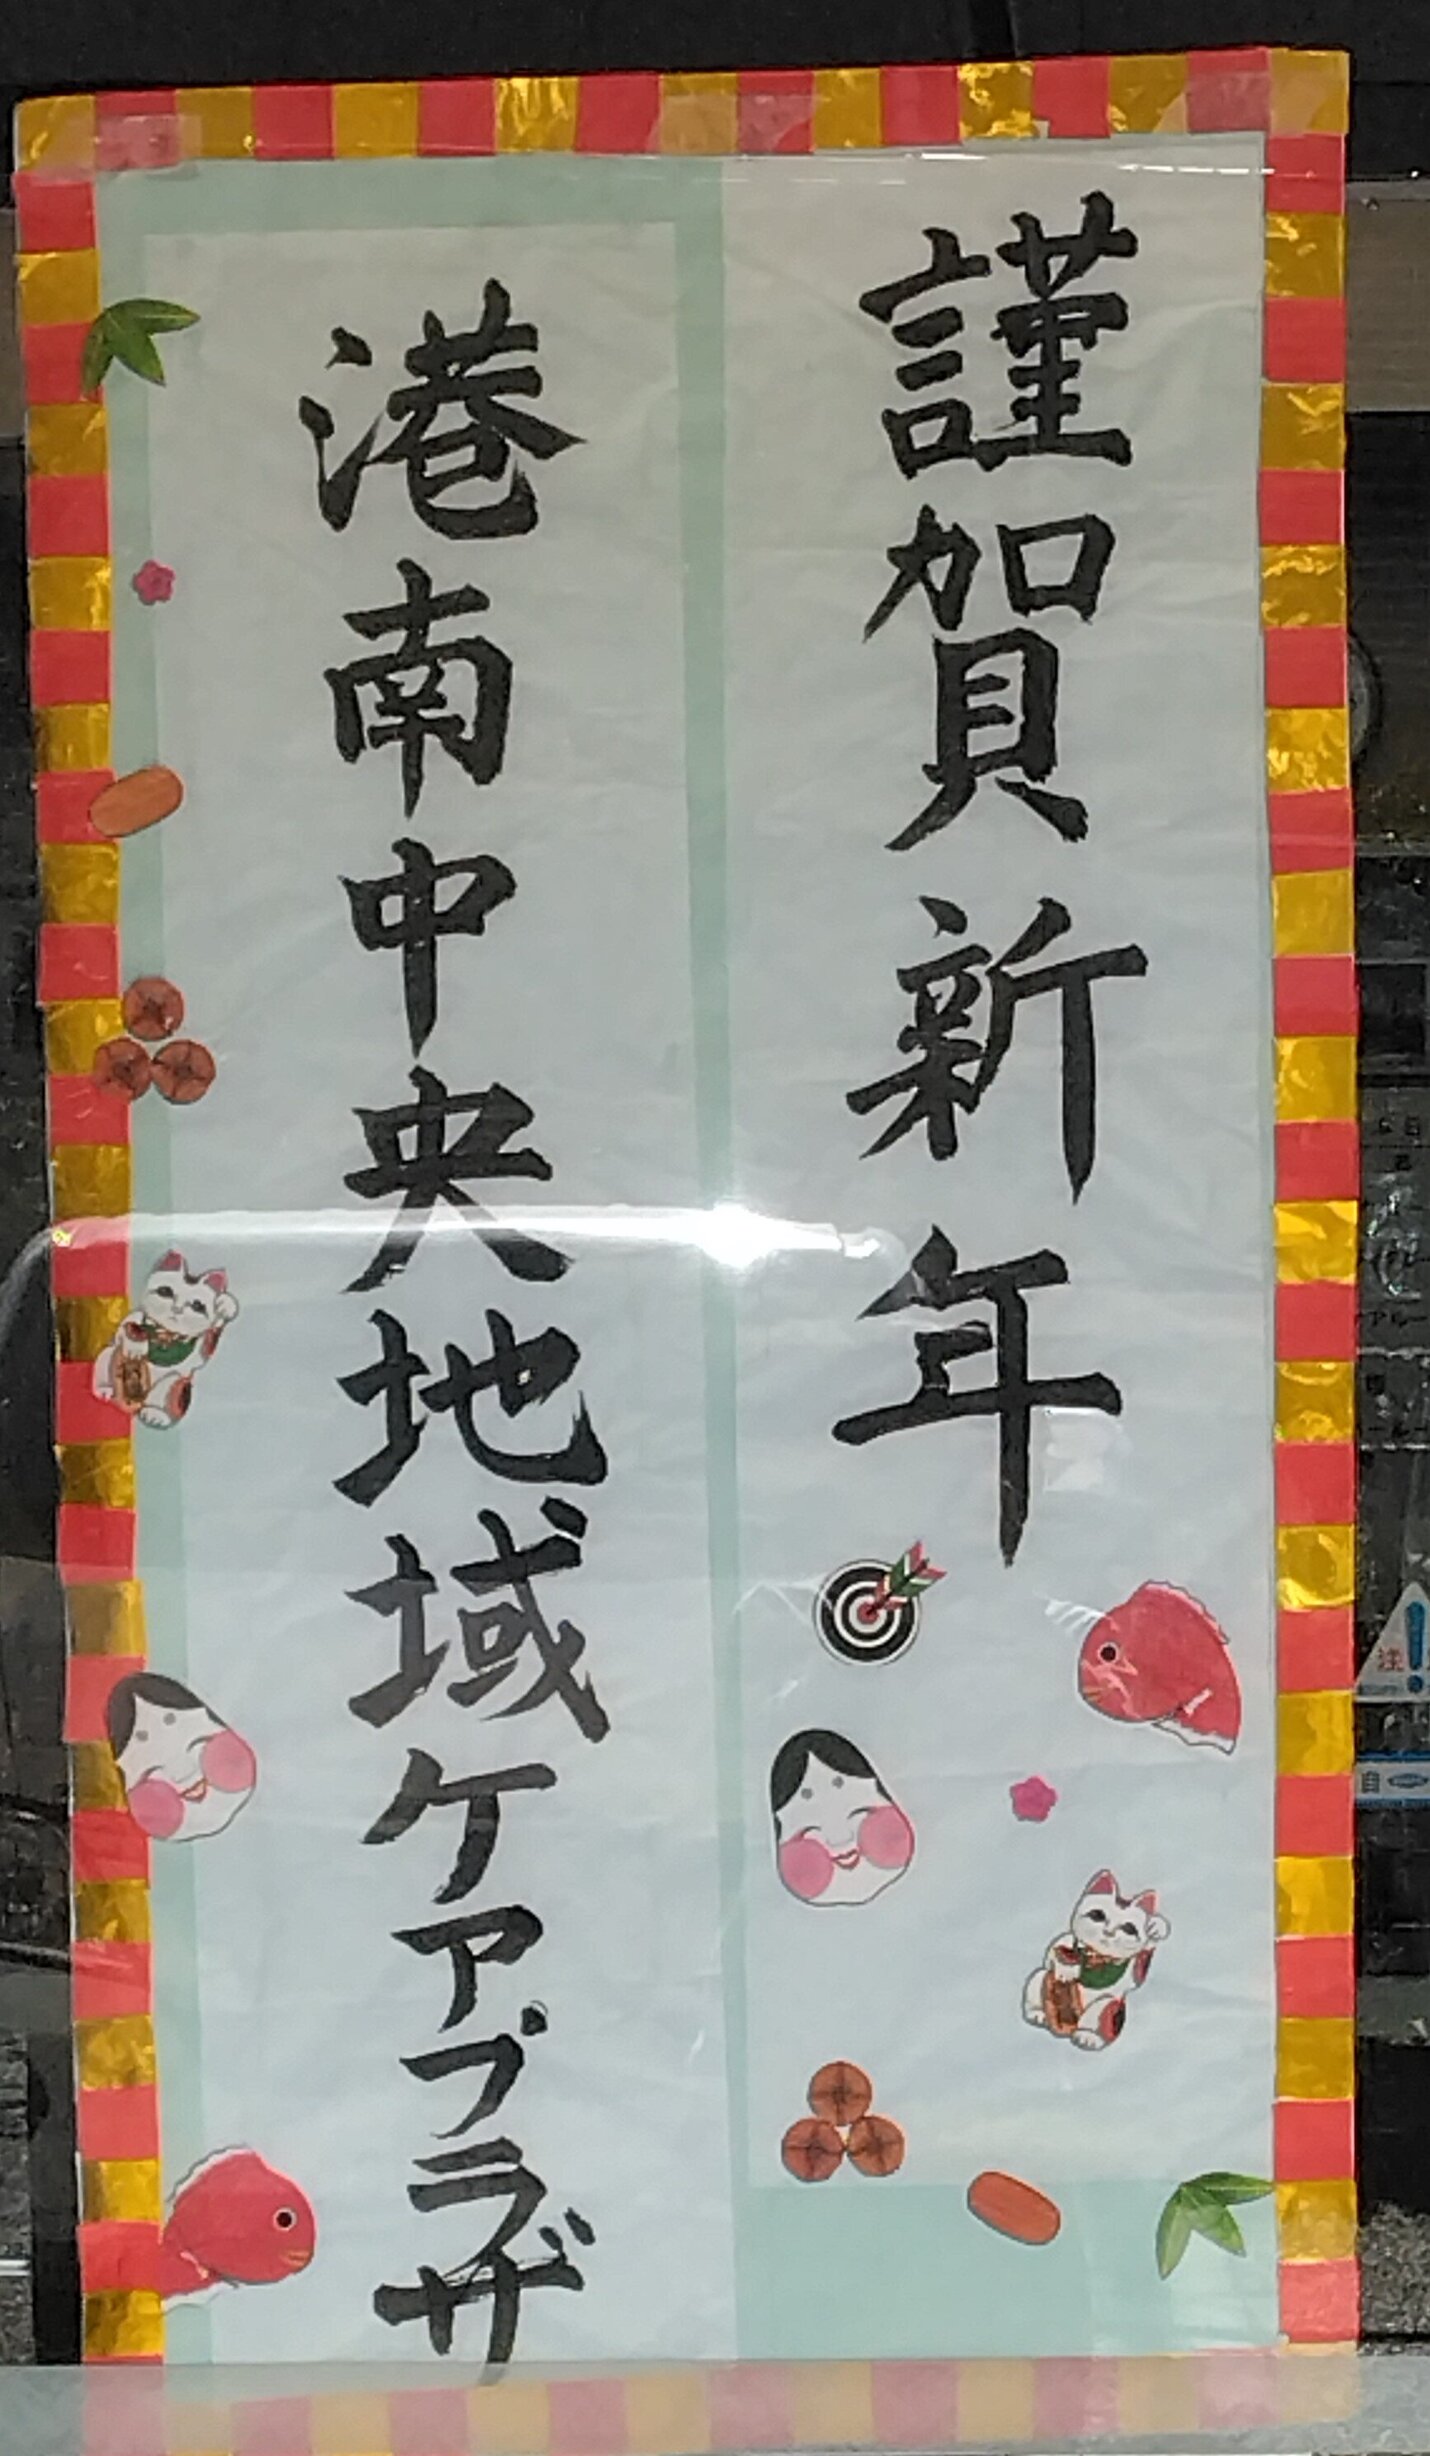 謹賀新年
港南中央地域ケアプラザ
注
自